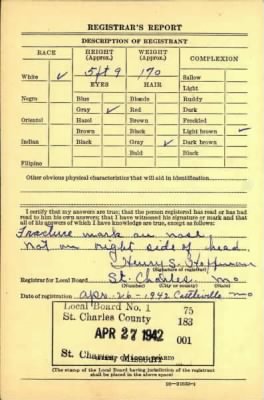 REGISTRAR'S REPORT
DESCRIPTION OF REGISTRANT
RACE HEIGHT (Approx.) WEIGHT (Approx.) COMPLEXION
White ✓ 5 ft 9 170 Sallow
EYES HAIR Light
Negro Blue Blonde Ruddy
Gray ✓ Red Dark
Oriental Hazel Brown Freckled
Brown Black Light brown ✓
Indian Black Gray ✓ Dark brown
Bald Black
Filipino
Other obvious physical characteristics that will aid in identification
I certify that my answers are true; that the person registered has read or has had
read to him his own answers; that I have witnessed his signature or mark and that
all of his answers of which I have knowledge are true, except as follows:
Fracture mark on nose
on right side of head
Henry S.
(Signature of registrar)
Registrar for Local Board St. Charles Mo
(Number) (City or county) (State)
Date of registration Apr. 26 - 1942 Cottleville Mo
Local Board No. 1 75
St. Charles County 183
APR 27 1942 001
St. Charles, Missouri
(The stamp of the Local Board having jurisdiction of the registrant
shall be placed in the above space)